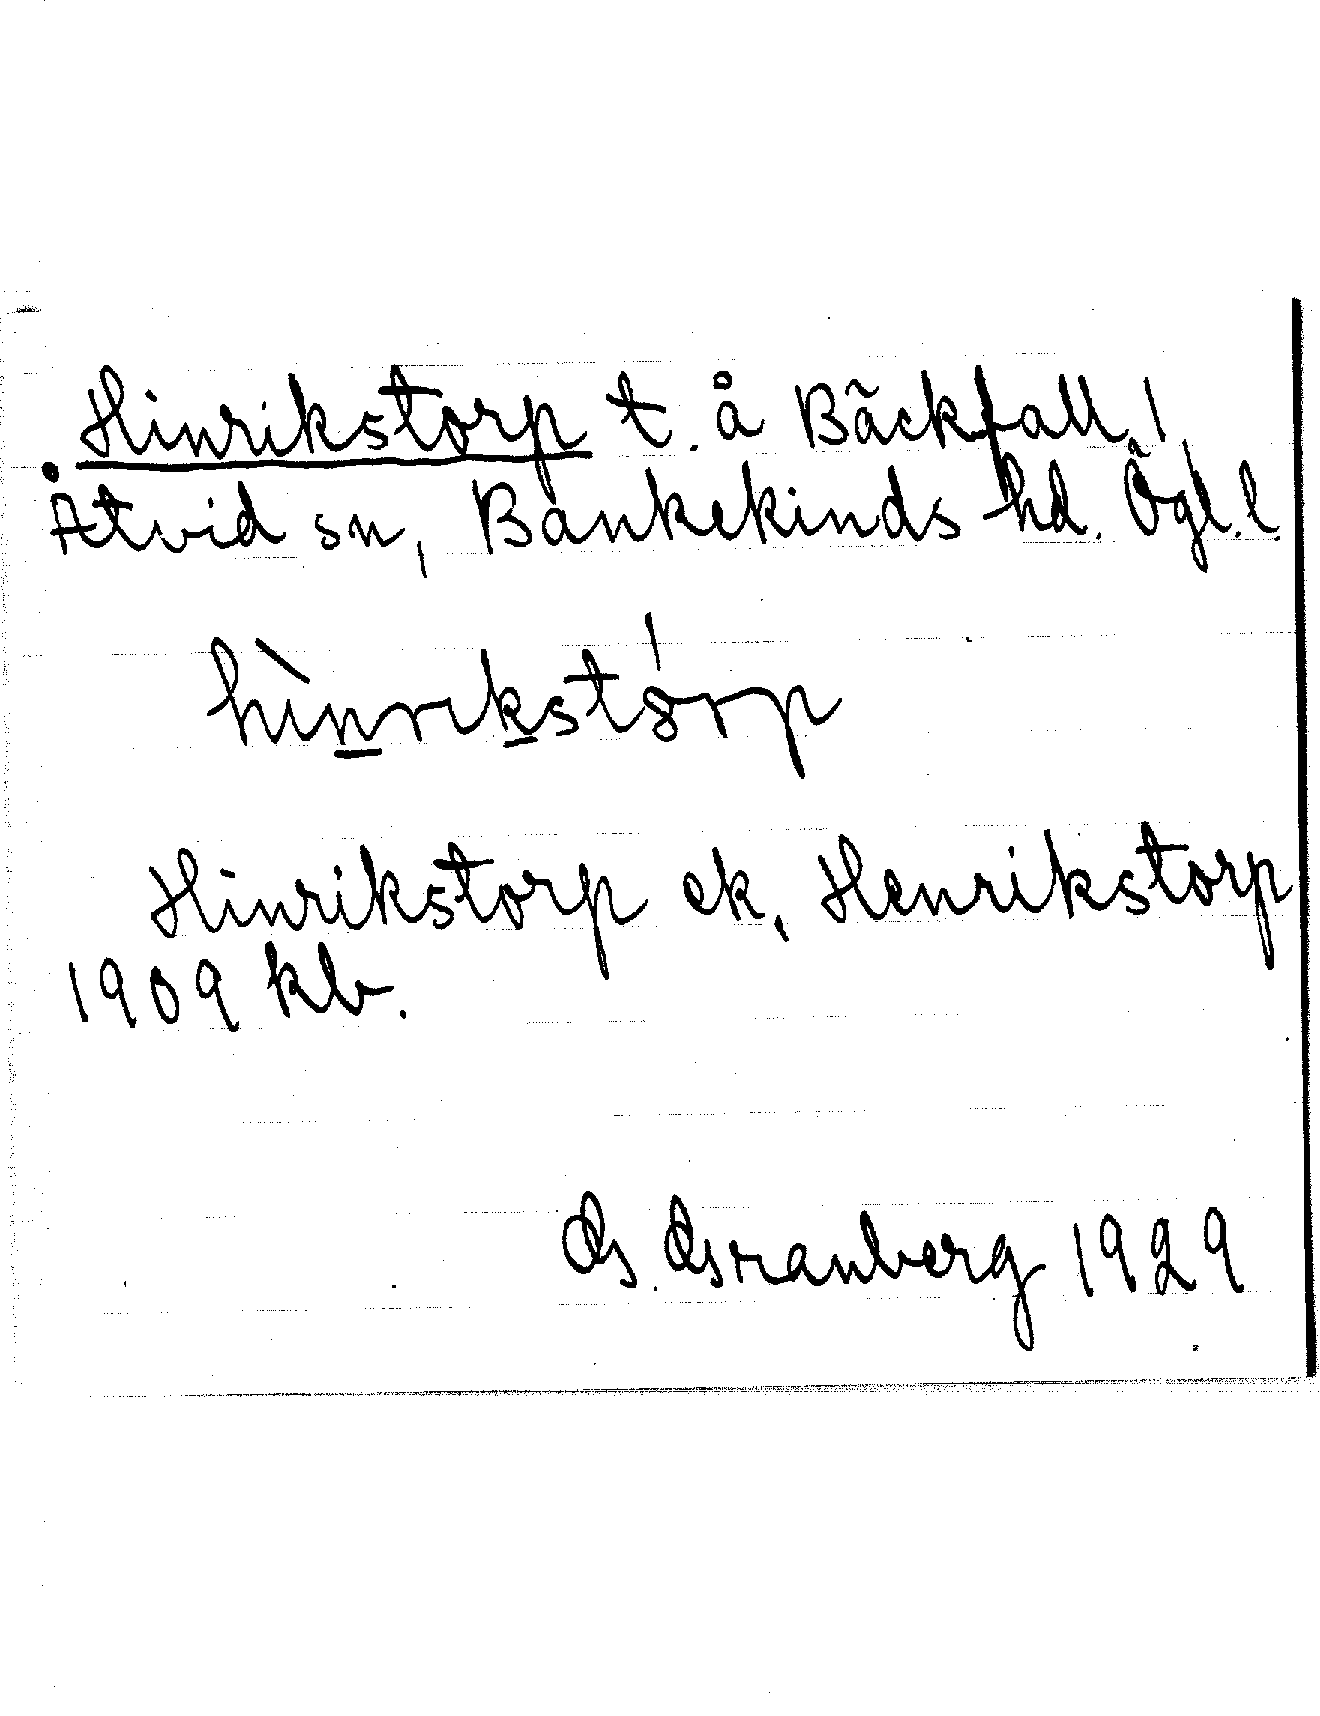 Hinrikstorp t. å Bäckfall,
Åtvid sn, Bankekinds hd. Ögl. l.
hìnrikstórp
Hinrikstorp ek, Henrikstorp
1909 kb.
G. Granberg 1929